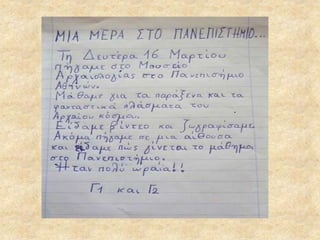 ΜΙΑ ΜΕΡΑ ΣΤΟ ΠΑΝΕΠΙΣΤΗΜΙΟ...
Τη Δευτέρα 16 Μαρτίου
πήγαμε στο Μουσείο
Αρχαιολογίας στο Πανεπισήμιο
Αθηνών.
Μάθαμε για τα παράξενα και τα
φανταστικά πλάσματα του
Αρχαίου κόσμου.
Είδαμε βίντεο και ζωγραφίσαμε.
Ακόμα πήγαμε σε μια αίθουσα
και είδαμε πώς γίνεται το μάθημα
στο Πανεπιστήμιο.
Ήταν πολύ ωραία!!
Γ1 και Γ2